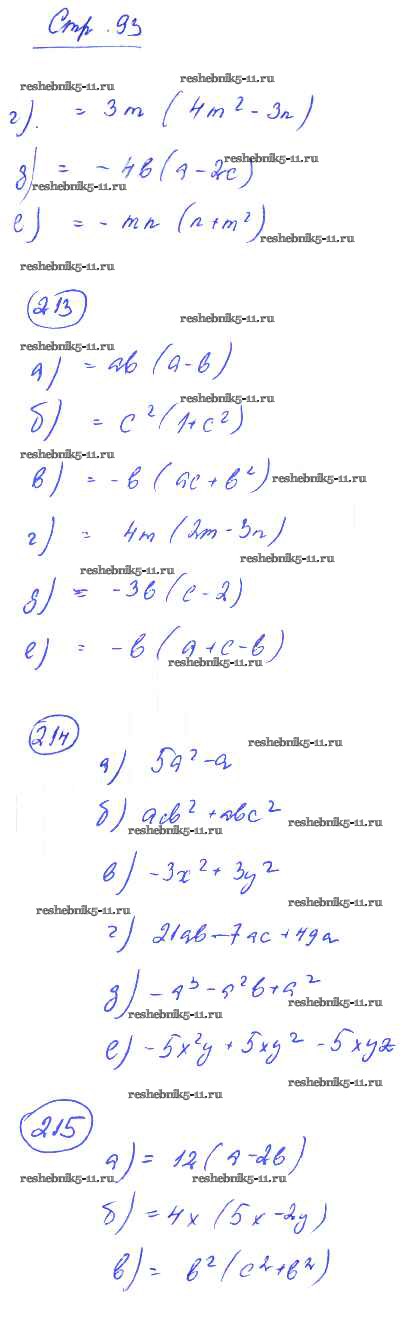 Стр. 93
reshebnik5-11.ru
reshebnik5-11.ru
г). = 3m (4m² - 3n)
reshebnik5-11.ru
д) = - 4b (a - 2c)
reshebnik5-11.ru
е) = - mn (n + m²)
reshebnik5-11.ru
reshebnik5-11.ru
213
reshebnik5-11.ru
reshebnik5-11.ru
а) = ab (a - b)
reshebnik5-11.ru
б) = c² (1 + c²)
reshebnik5-11.ru
в) = - b (ac + b²)
reshebnik5-11.ru
г) = 4m (2m - 3n)
reshebnik5-11.ru
reshebnik5-11.ru
д) = -3b (c - 2)
е) = -b (a + c - b)
reshebnik5-11.ru
214
reshebnik5-11.ru
а) 5a² - a
б) acb² + abc²
reshebnik5-11.ru
reshebnik5-11.ru
в) -3x² + 3y²
reshebnik5-11.ru
reshebnik5-11.ru
г) 21ab - 7ac + 49a
д) - a³ - a²b + a²
reshebnik5-11.ru
reshebnik5-11.ru
е) -5x²y + 5xy² - 5xyz
reshebnik5-11.ru
reshebnik5-11.ru
215
а) = 12 (a - 2b)
reshebnik5-11.ru
reshebnik5-11.ru
б) = 4x (5x - 2y)
в) = b² (c² + b²)